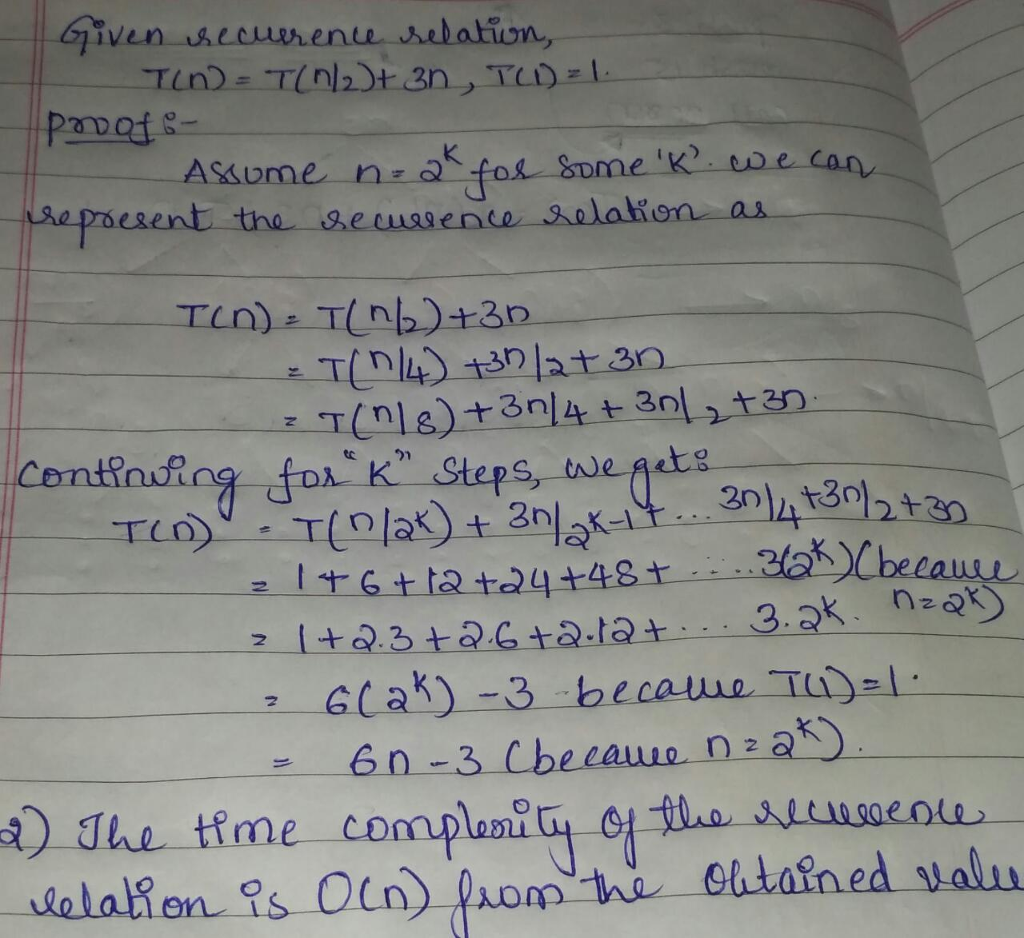 Given recurrence relation,
T(n) = T(n/2)+ 3n, T(1) = 1.
proof :-
Assume n = 2^k for some 'K'. we can
represent the recurrence relation as
T(n) = T(n/2)+3n
= T(n/4) +3n/2+ 3n
= T(n/8) + 3n/4 + 3n/2 +3n.
Continuing for "K" Steps, we get :
T(n) = T(n/2^k) + 3n/2^k-1 + ... 3n/4+3n/2+3n
= 1+6+12+24+48+ ..... 3(2^k) (because
n=2^k)
= 1+2.3+2.6+2.12+ ... 3.2^k.
= 6(2^k) -3 because T(1)=1.
= 6n-3 (because n=2^k).
2) The time complexity of the recurrence
relation is O(n) from the obtained value